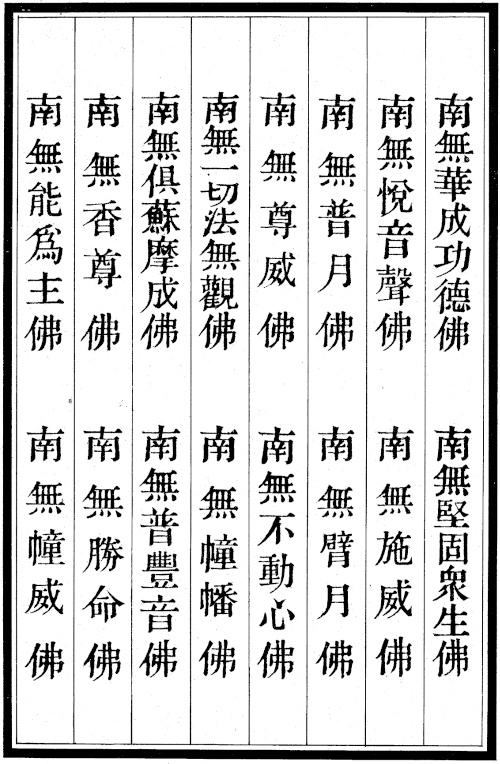 南無華成功德佛 南無堅固衆生佛
南無悅音聲佛 南無施威佛
南無普月佛 南無臂月佛
南無尊威佛 南無不動心佛
南無一切法無觀佛 南無幢幡佛
南無俱蘇摩成佛 南無普豐音佛
南無香尊佛 南無勝命佛
南無能爲主佛 南無幢威佛